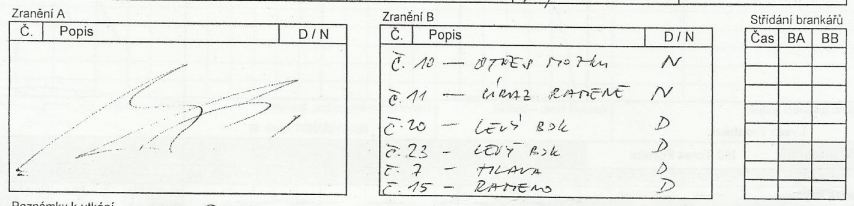 Zranění A
Č. Popis D / N
Zranění B
Č. Popis D / N
č. 10 — OTŘES MOZKU N
č. 11 — ÚRAZ RAMENE N
č. 20 — LEVÝ BOK D
č. 23 — LEVÝ BOK D
č. 7 — HLAVA D
č. 15 — RAMENO D
Střídání brankářů
Čas BA BB
Poznámky k utkání